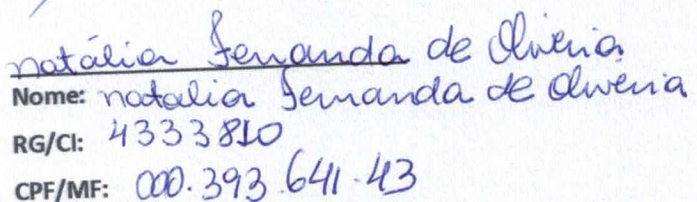 natália Fernanda de Oliveira
Nome: natalia Fernanda de Oliveira
RG/CI: 4333810
CPF/MF: 000.393.641-43